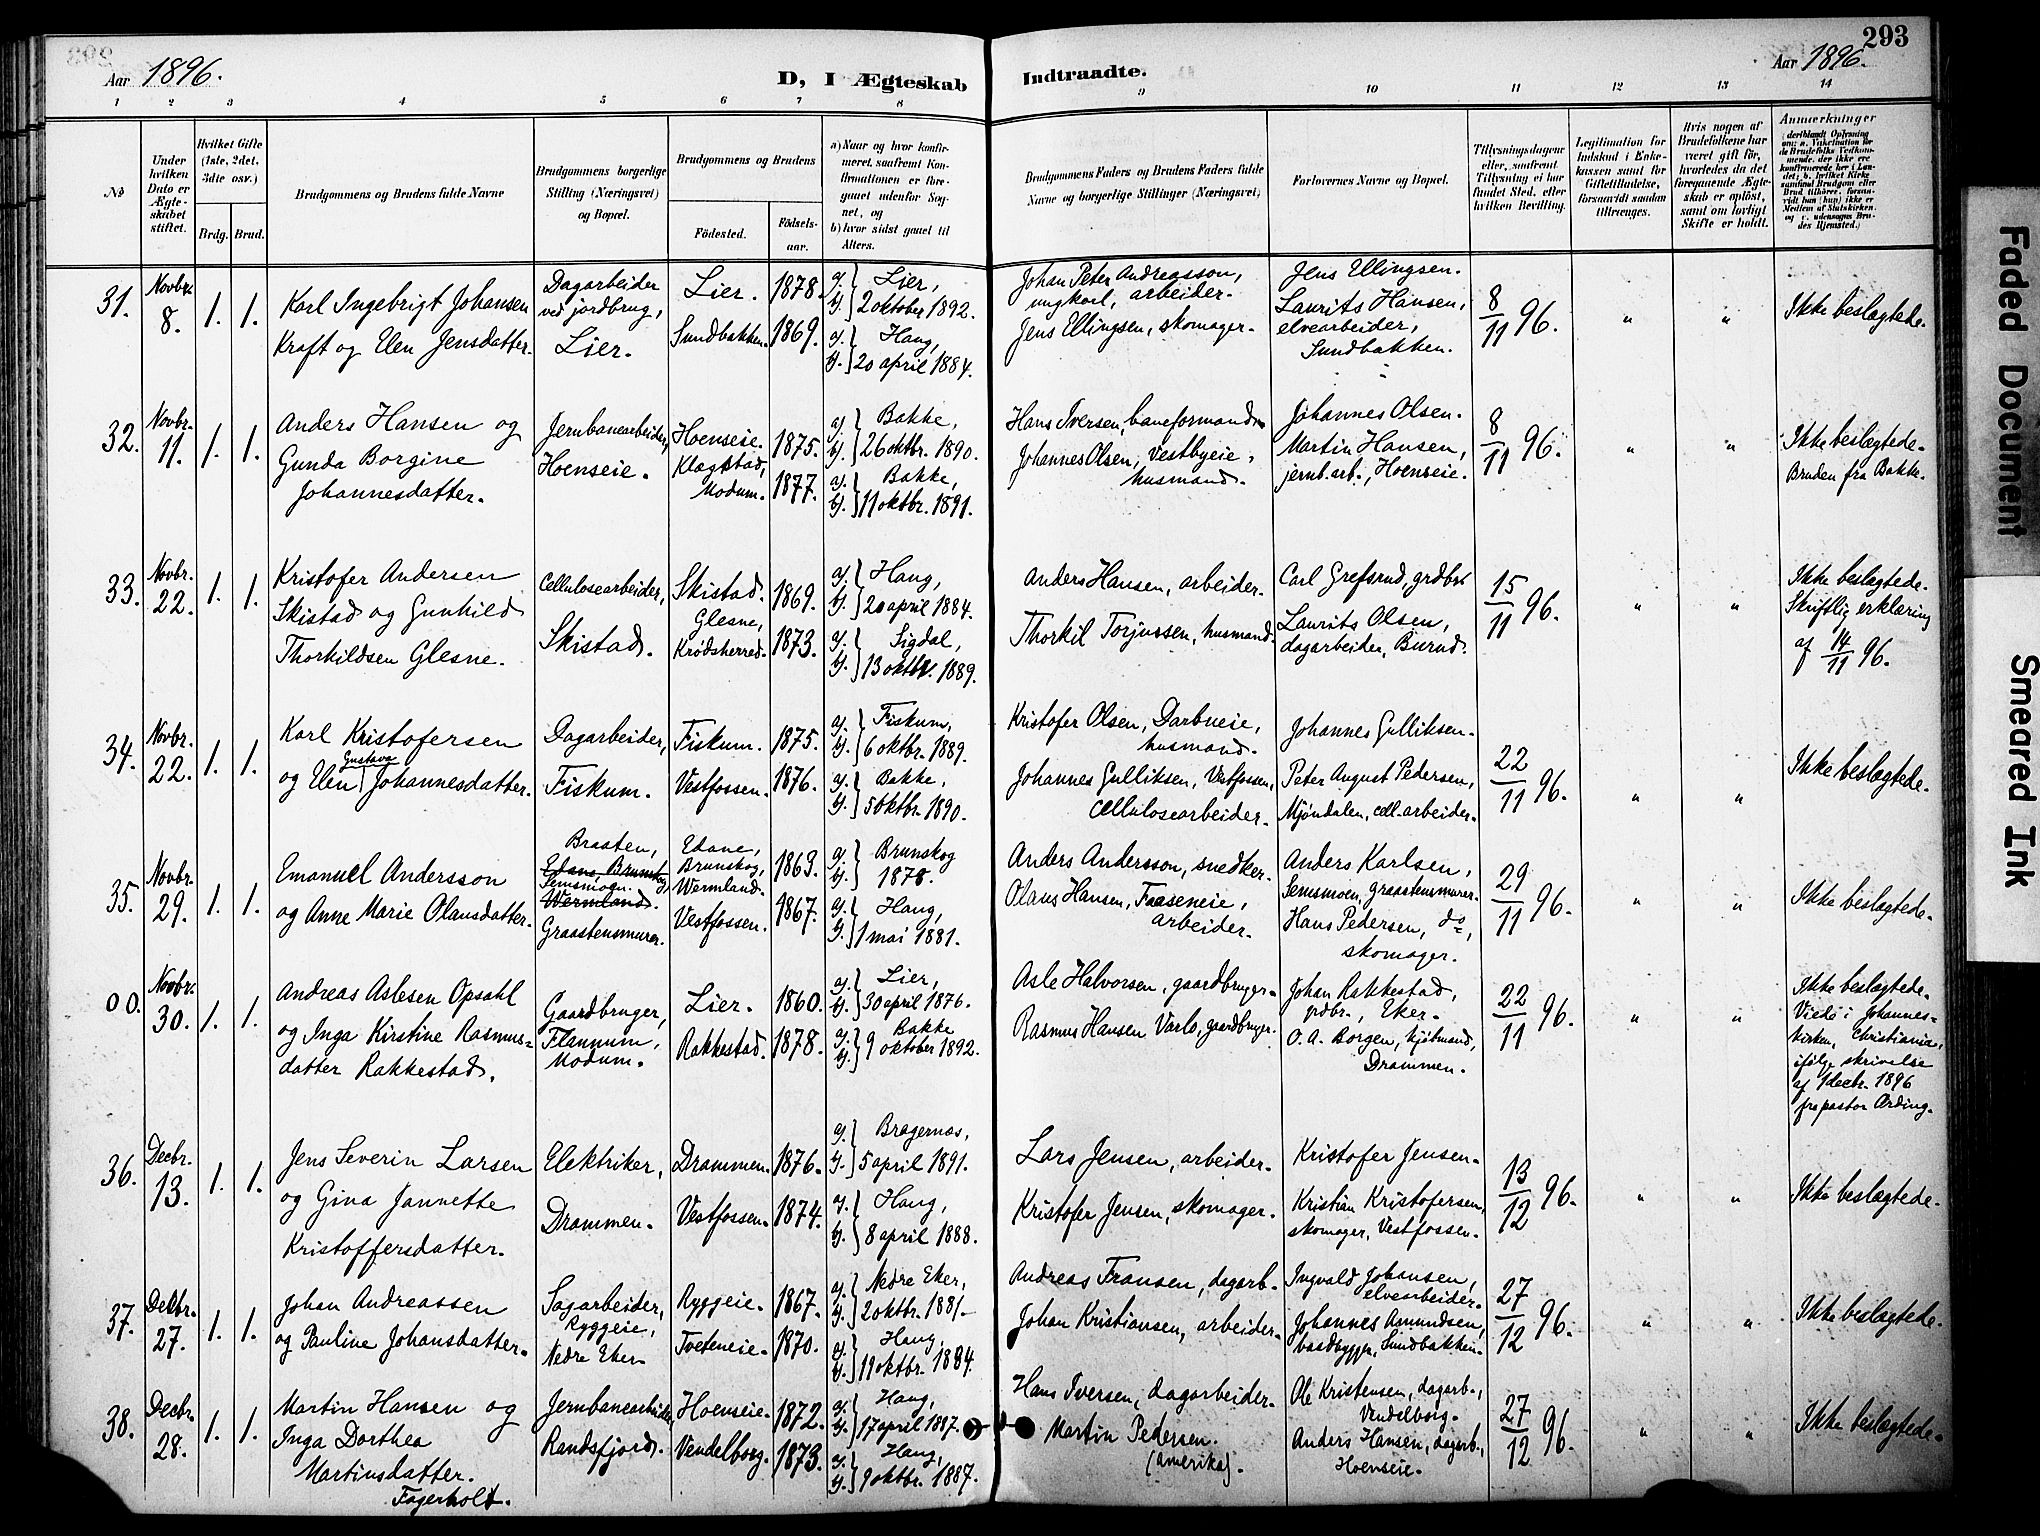 293
Aar 1896.
D, I Ægteskab Indtraadte.
Aar 1896.
1 2 3 4 5 6 7 8 9 10 11 12 13 14
No
Under hvilken Dato er Ægteskabet stiftet.
Hvilket Gifte (1ste, 2det, 3die osv.)
Brdg. Brud.
Brudgommens og Brudens fulde Navne
Brudgommens borgerlige Stilling (Næringsvei) og Bopæl.
Brudgommens og Brudens
Fødested.
Fødselsaar.
a) Naar og hvor konfirmeret, saafremt Konfirmationen er foregaaet udenfor Sognet, og
b) hvor sidst gaaet til Alters.
Brudgommens Faders og Brudens Faders fulde Navne og borgerlige Stillinger (Næringsvei)
Forlovernes Navne og Bopæl.
Tillysningsdagene eller, saafremt Tillysning ei har fundet Sted, efter hvilken Bevilling.
Legitimation for Indskud i Enkekassen samt for Giftetilladelse, forsaavidt saadan tiltrænges.
Hvis nogen af Brudefolkene har været gift før, hvorledes da det foregaaende Ægteskab er opløst, samt om lovligt Skifte er holdt.
Anmærkninger
31. Novbr. 8. 1. 1.
Karl Ingebrigt Johansen
Kraft og Elen Jensdatter.
Dagarbeider
ved jordbrug,
Lier.
Lier. 1878.
Sundbakken. 1869.
a). b). Lier, 2 oktober 1892.
a). b). Haug, 20 april 1884.
Johan Peter Andreasson,
ungkarl, arbeider.
Jens Ellingsen, skomager.
Jens Ellingsen.
Laurits Hansen,
elvearbeider,
Sundbakken.
8/11 96.
" "
Ikke beslægtede.
32. Novbr. 11. 1. 1.
Anders Hansen og
Gunda Borgine
Johannesdatter.
Jernbanearbeider,
Hoenseie.
Hoenseie. 1875.
Klagstad,
Modum. 1877.
a). b). Bakke, 26 oktbr. 1890.
a). b). Bakke, 11 oktbr. 1891.
Hans Iversen, baneformand
Johannes Olsen, Vestbyeie,
husmand.
Johannes Olsen.
Martin Hansen,
jernb. arb., Hoenseie.
8/11 96.
" "
Ikke beslægtede.
Bruden fra Bakke.
33. Novbr. 22. 1. 1.
Kristofer Andersen
Skistad og Gunhild
Thorkildsen Glesne.
Cellulosearbeider,
Skistad.
Skistad. 1869.
Glesne,
Krødsherred. 1873.
a). b). Haug, 20 april 1884.
a). b). Sigdal, 13 oktbr. 1889.
Anders Hansen, arbeider.
Thorkil Torjussen, husmand.
Carl Grefsrud, grdbr.
Laurits Olsen,
dagarbeider, Burud.
15/11 96.
" "
Ikke beslægtede.
Skriftlig erklæring
af 14/11 96.
34. Novbr. 22. 1. 1.
Karl Kristofersen
Gustava
og Elen Johannesdatter.
Dagarbeider,
Fiskum.
Fiskum. 1875.
Vestfossen. 1876.
a). b). Fiskum, 6 oktbr. 1889.
a). b). Bakke, 5 oktbr. 1890.
Kristofer Olsen, Darbueie,
husmand.
Johannes Gulliksen, Vestfossen,
Cellulosearbeider.
Johannes Gulliksen.
Peter August Pedersen,
Mjøndalen, cell. arbeider.
22/11 96.
" "
Ikke beslægtede.
35. Novbr. 29. 1. 1.
Emanuel Andersson
og Anne Marie Olausdatter.
Braaten,
Edane, Brunskog
Semsmoen.
Wermland.
Graastensmurer.
Edane,
Brunskog,
Wermland. 1863.
Vestfossen. 1867.
a). b). Brunskog 1878.
a). b). Haug, 1 mai 1881.
Anders Andersson, snedker.
Olaus Hansen, Faaseneie,
arbeider.
Anders Karlsen,
Semsmoen, graastensmurer.
Hans Pedersen, do,
skomager.
29/11 96.
" "
Ikke beslægtede.
00. Novbr. 30. 1. 1.
Andreas Aslesen Opsahl
og Inga Kirstine Rasmus=
datter Rakkestad.
Gaardbruger,
Flannum,
Modum.
Lier. 1860.
Rakkestad. 1878.
a). b). Lier, 30 april 1876.
a). b). Bakke 9 oktober 1892.
Asle Halvorsen, gaardbruger.
Rasmus Hansen Varlo, gaardbruger.
Johan Rakkestad,
grdbr., Eker.
O. A. Borgen, kjøbmand,
Drammen.
22/11 96.
" "
Ikke beslægtede.
Viede i Johannes=
kirken, Christiania,
ifølge skrivelse
af 1 decbr. 1896
fra pastor Ording.
36. Decbr. 13. 1. 1.
Jens Severin Larsen
og Gina Jannette
Kristoffersdatter.
Elektriker,
Drammen.
Drammen. 1876.
Vestfossen. 1874.
a). b). Bragernæs, 5 april 1891.
a). b). Haug, 8 april 1888.
Lars Jensen, arbeider.
Kristofer Jensen, skomager.
Kristofer Jensen.
Kristian Kristofersen,
skomager, Vestfossen.
13/12 96.
" "
Ikke beslægtede.
37. Decbr. 27. 1. 1.
Johan Andreassen
og Pauline Johansdatter.
Sagarbeider,
Ryggeie,
Nedre Eker
Ryggeie. 1867.
Tveteneie. 1870.
a). b). Nedre Eker, 2 oktbr. 1881.
a). b). Haug, 19 oktbr. 1884.
Andreas Fransen, dagarb.
Johan Kristiansen, arbeider.
Ingvald Johansen,
elvearbeider.
Johannes Amundsen,
baadbygger, Sundbakken.
27/12 96.
" "
Ikke beslægtede.
38. Decbr. 28. 1. 1.
Martin Hansen og
Inga Dorthea
Martinsdatter.
Fagerholt.
Jernbanearbeider,
Randsfjord.
Hoenseie. 1872.
Vendelborg. 1873.
a). b). Haug, 17 april 1887.
a). b). Haug, 9 oktbr. 1887.
Hans Iversen, dagarbeider.
Martin Pedersen.
(Amerika).
Ole Kristensen, dagarb.,
Vendelborg.
Anders Hansen, dagarb.,
Hoenseie.
27/12 96.
" "
Ikke beslægtede.
Faded Document
Smeared Ink